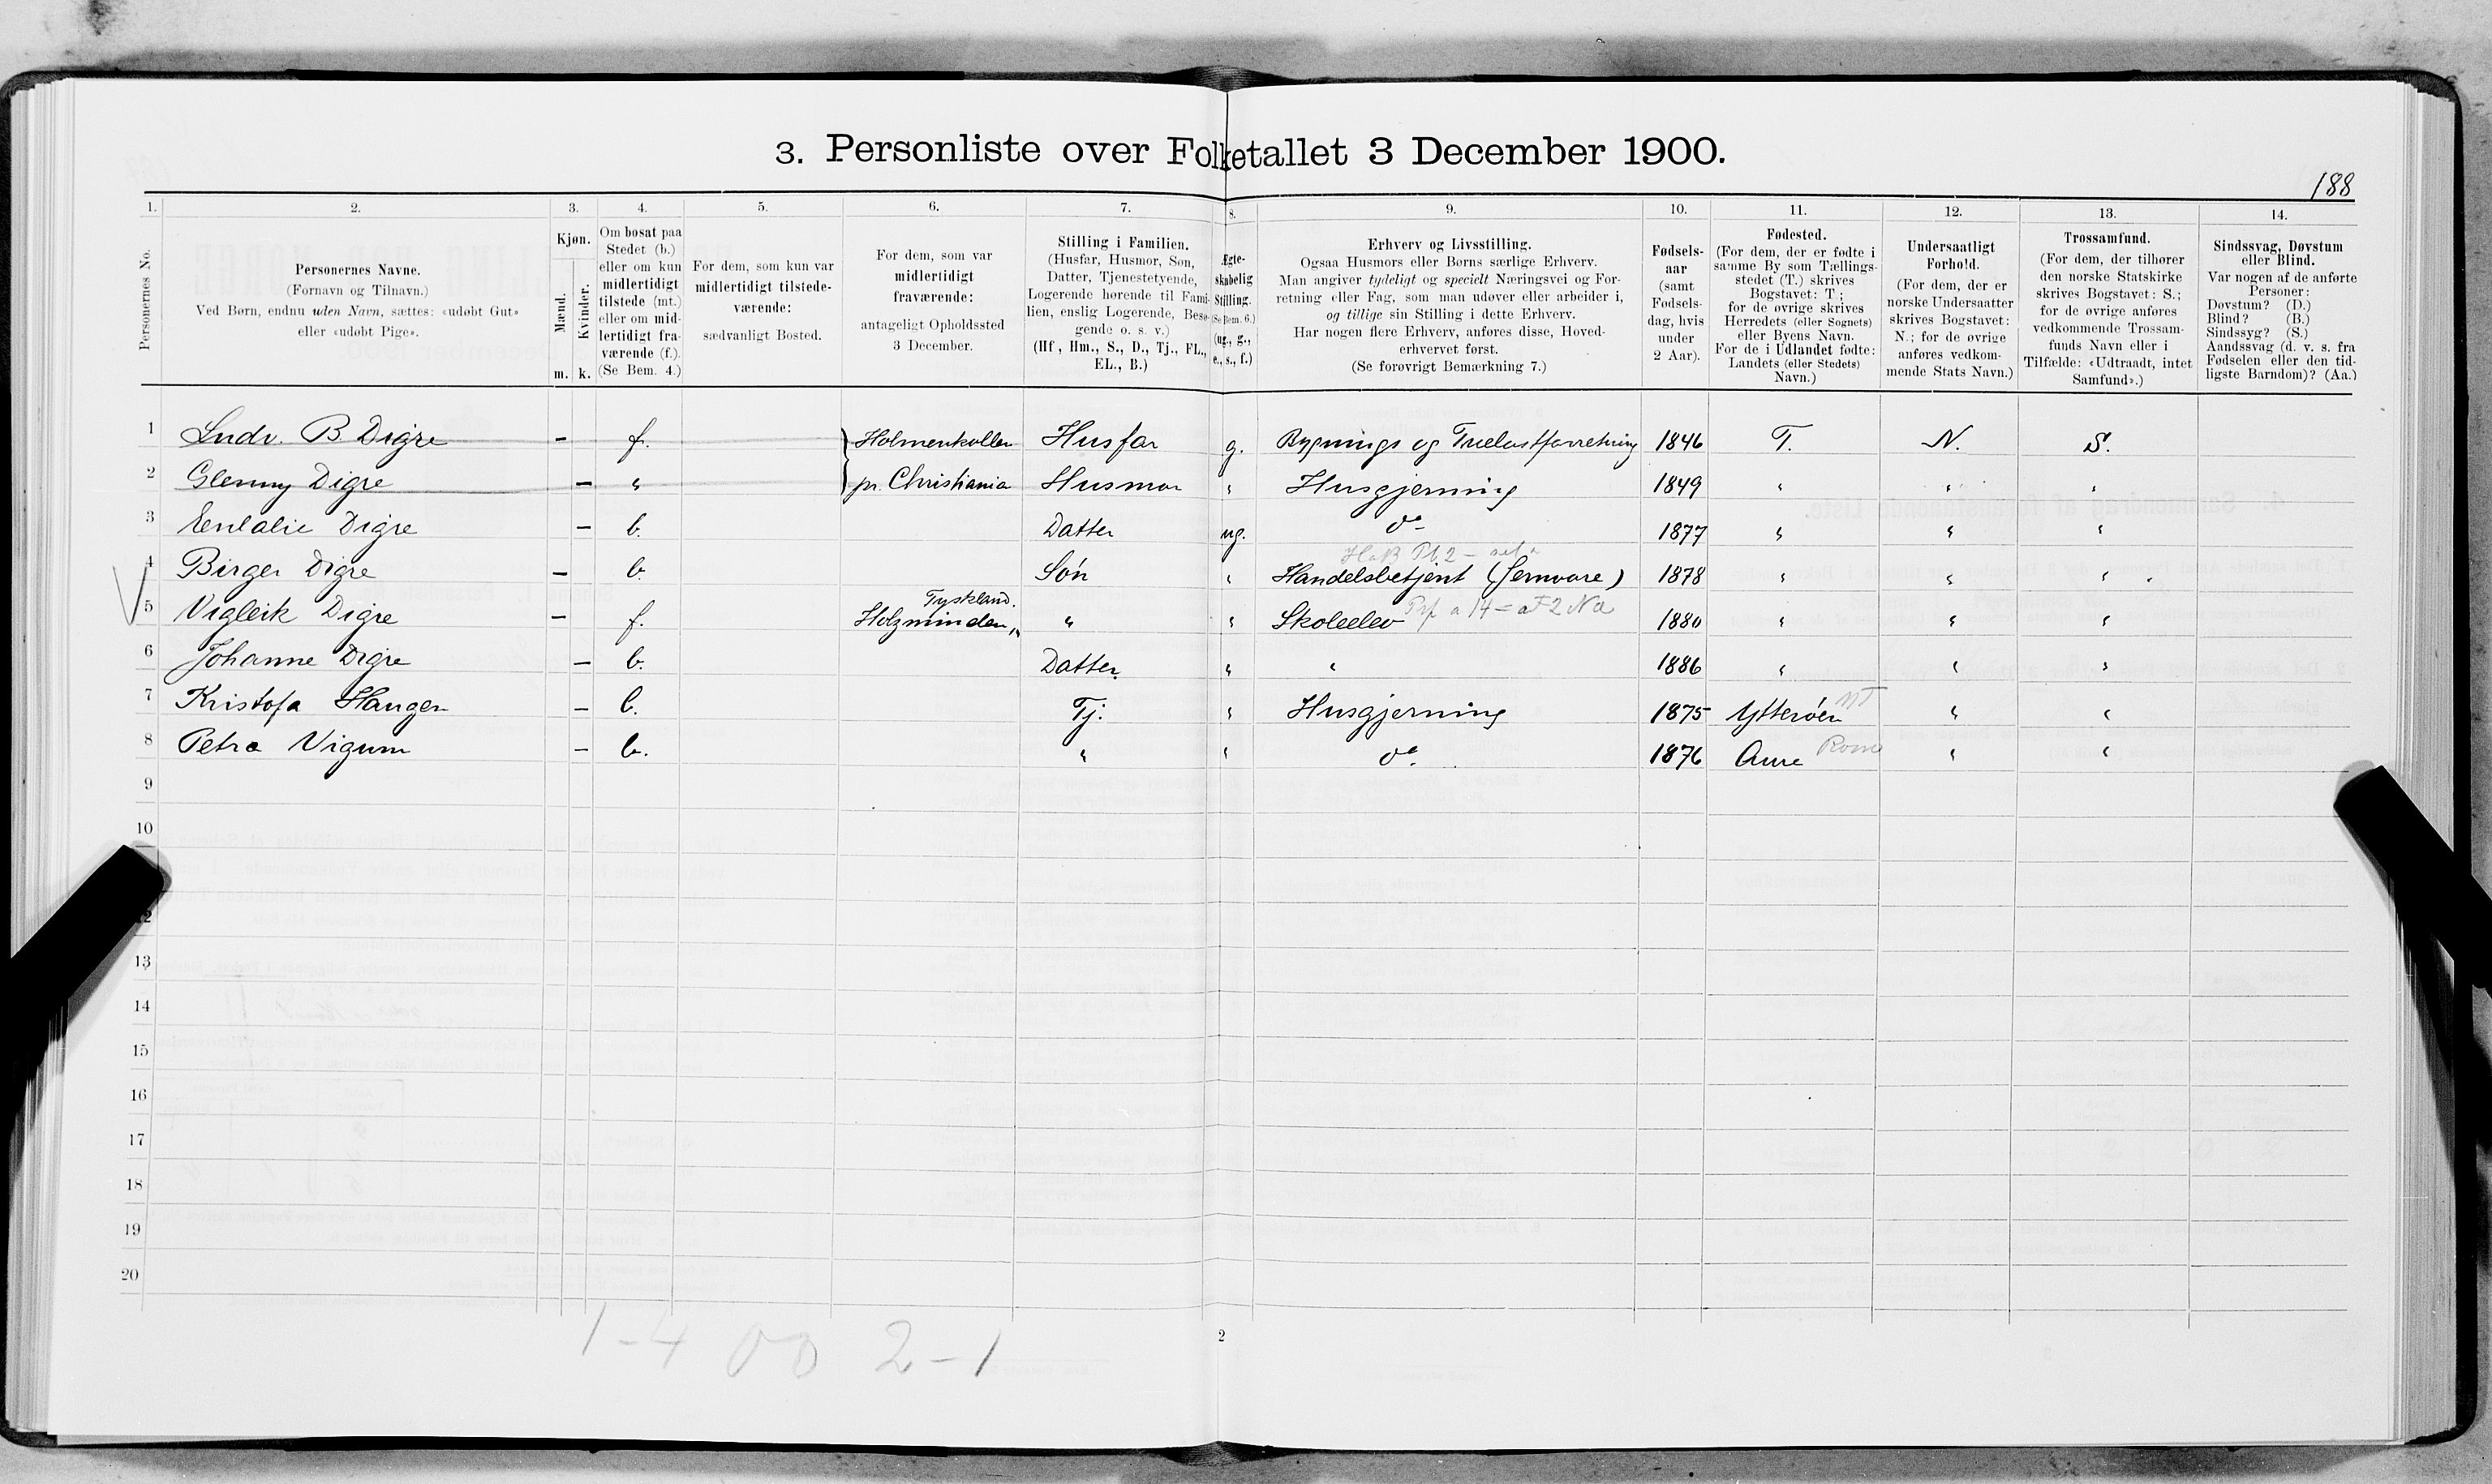 3. Personliste over Folketallet 3 December 1900.
188
1. 2. 3. 4. 5. 6. 7. 8. 9. 10. 11. 12. 13. 14.
Personernes No.
Personernes Navne.
(Fornavn og Tilnavn.)
Ved Børn, endnu uden Navn, sættes: «udøbt Gut»
eller «udøbt Pige».
Kjøn.
Mænd.
Kvinder.
m. k.
Om bosat paa
Stedet (b.)
eller om kun
midlertidigt
tilstede (mt.)
eller om mid-
lertidigt fra-
værende (f.).
(Se Bem. 4.)
For dem, som kun var
midlertidigt tilstede-
værende:
sædvanligt Bosted.
For dem, som var
midlertidigt
fraværende:
antageligt Opholdssted
3 December.
Stilling i Familien.
(Husfar, Husmor, Søn,
Datter, Tjenestetyende,
Logerende hørende til Fami-
lien, enslig Logerende, Besø-
gende o. s. v.)
(Hf., Hm., S., D., Tj., FL.,
EL., B.)
Ægte-
skabelig
Stilling.
(Se Bem. 6.)
(ug., g.,
e., s., f.)
Erhverv og Livsstilling.
Ogsaa Husmors eller Børns særlige Erhverv.
Man angiver tydeligt og specielt Næringsvei og For-
retning eller Fag, som man udøver eller arbeider i,
og tillige sin Stilling i dette Erhverv.
Har nogen flere Erhverv, anføres disse, Hoved-
erhvervet først.
(Se forøvrigt Bemærkning 7.)
Fødsels-
aar
(samt
Fødsels-
dag, hvis
under
2 Aar).
Fødested.
(For dem, der er fødte i
samme By som Tællings-
stedet (T.) skrives
Bogstavet: T.;
for de øvrige skrives
Herredets (eller Sognets)
eller Byens Navn.
For de i Udlandet fødte:
Landets (eller Stedets)
Navn.)
Undersaatligt
Forhold.
(For dem, der er
norske Undersaatter
skrives Bogstavet:
N.; for de øvrige
anføres vedkom-
mende Stats Navn.)
Trossamfund.
(For dem, der tilhører
den norske Statskirke
skrives Bogstavet: S.;
for de øvrige anføres
vedkommende Trossam-
funds Navn eller i
Tilfælde: «Udtraadt, intet
Samfund».)
Sindssvag, Døvstum
eller Blind.
Var nogen af de anførte
Personer:
Døvstum? (D.)
Blind? (B.)
Sindssyg? (S.)
Aandssvag (d. v. s. fra
Fødselen eller den tid-
ligste Barndom)? (Aa.)
1 Ludv. B. Digre – f. Holmenkollen Husfar g. Bygnings og Trælastforretning 1846 T. N. S.
2 Glenny Digre – " pr. Christiania Husmor " Husgjerning 1849 " " "
3 Eulalie Digre – b. Datter ug. do 1877 " " "
4 Birger Digre – b. Søn " Handelsbetjent (Jernvare) 1878 " " "
5 Vigleik Digre – f. Holzminden, Tyskland. " " Skoleelev 1880 " " "
6 Johanne Digre – b. Datter " " 1886 " " "
7 Kristofa Haugen – b. Tj. " Husgjerning 1875 Ytterøen NT " "
8 Petra Vigum – b. " " do. 1876 Aure Roms " "
9
10
12
13
14
15
16
17
18
19
20
1-4 00 2-1
2